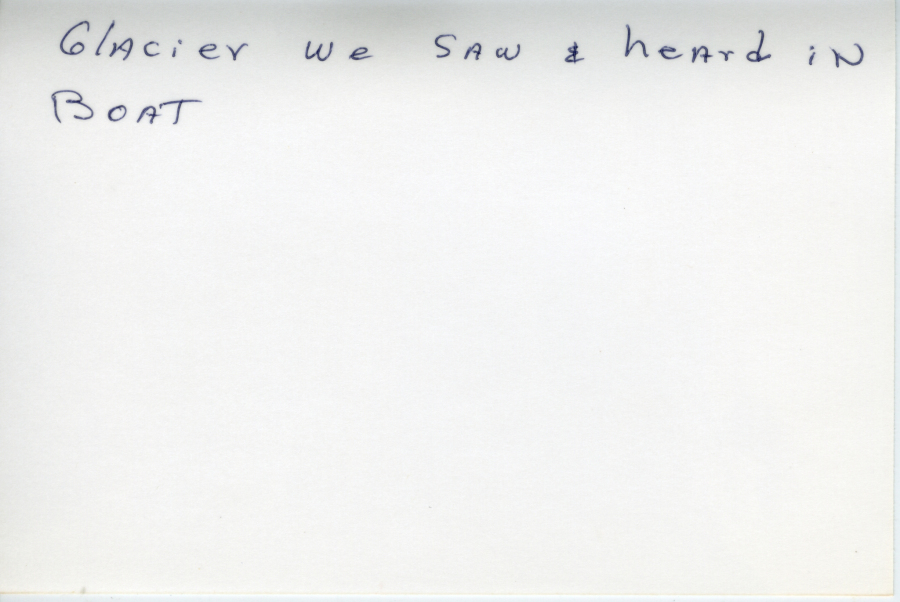 Glacier we saw & heard in
Boat